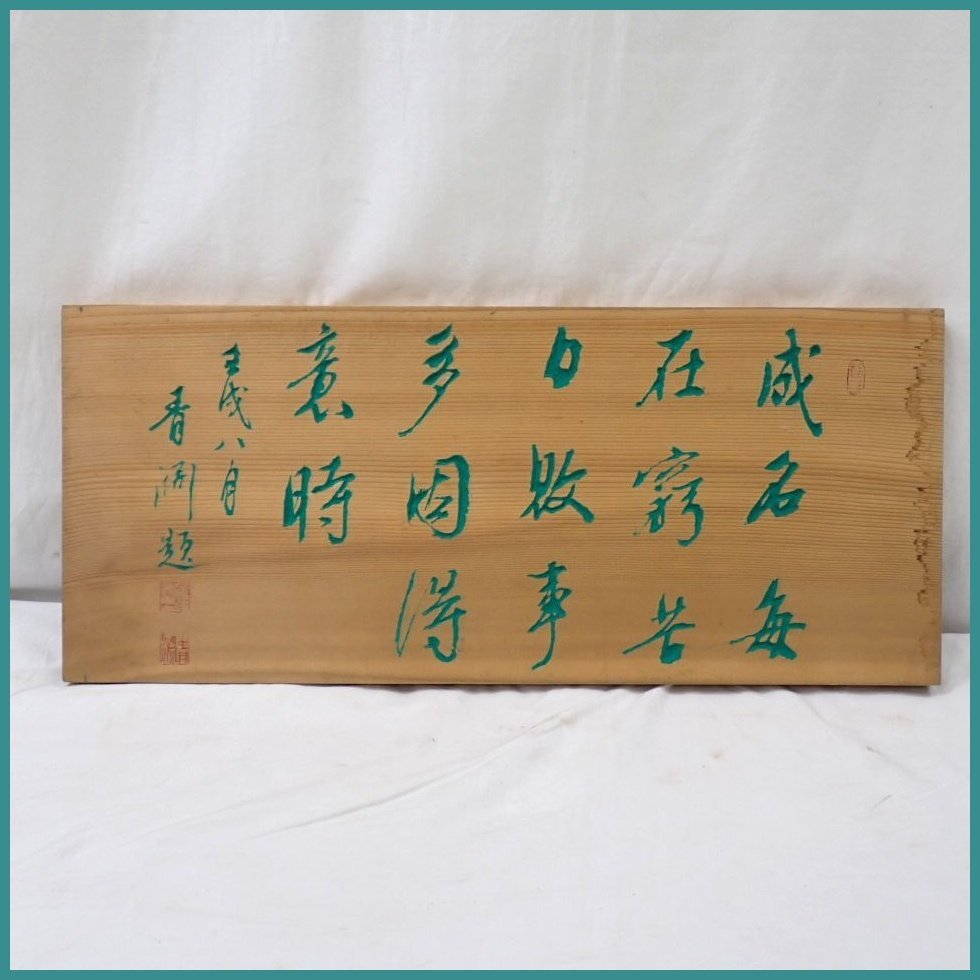 成名毎
在窮苦
日敗事
多因得
意時
壬戌八月
青淵題